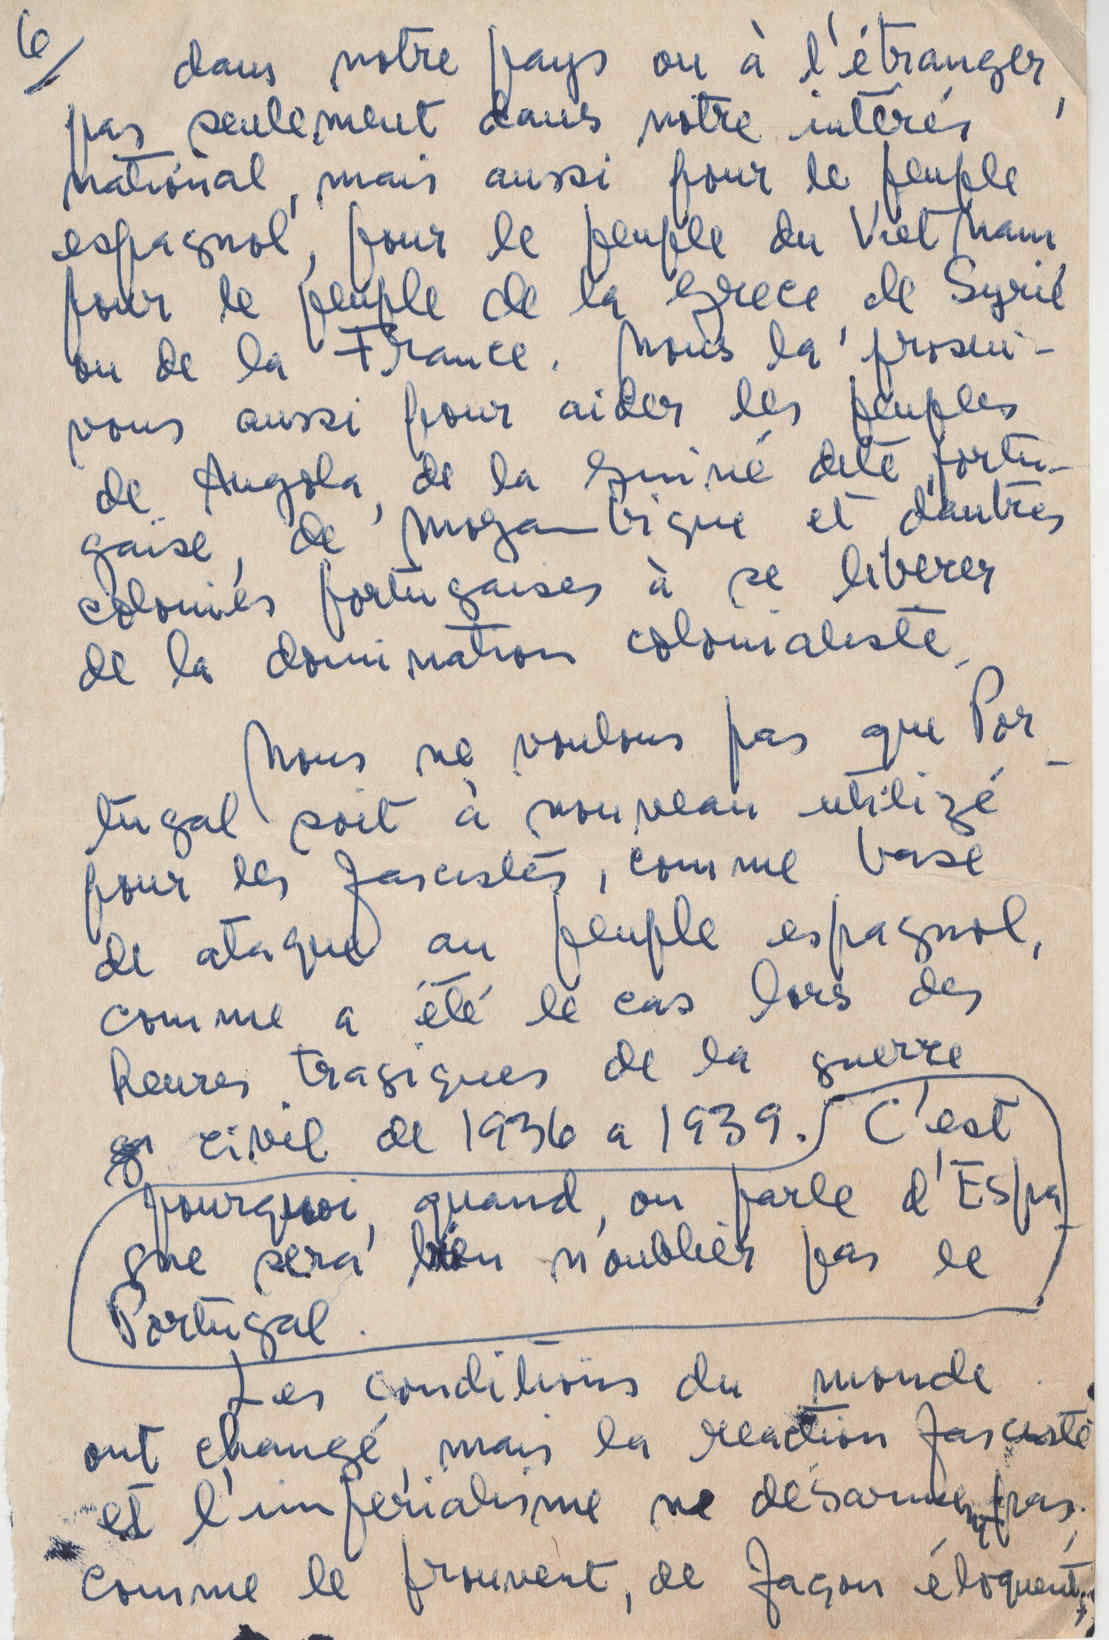 6/
dans notre pays ou à l'étranger,
pas seulement dans notre intérés
national, mais aussi pour le peuple
espagnol, pour le peuple du Viet Nam,
pour le peuple de la Grece de Syrie
ou de la France. Nous la prosui-
vous aussi pour aider les peuples
de Angola, de la Guiné dite portu-
gaise, de Mozambique et d'autres
colonies portugaises à se liberer
de la domination colonialiste.
Nous ne voulons pas que Por-
tugal soit à nouveau utilizé
pour les fascistes, comme base
de ataque au peuple espagnol,
comme a été le cas lors des
heures tragiques de la guerre
civil de 1936 a 1939. C'est
pourquoi, quand, on parle d'Espa-
gne sera bien n'oublier pas le
Portugal.
Les conditions du monde
ont changé, mais la reaction fasciste
et l'imperialisme ne désarment pas.
comme le prouvent, de façon éloquent,